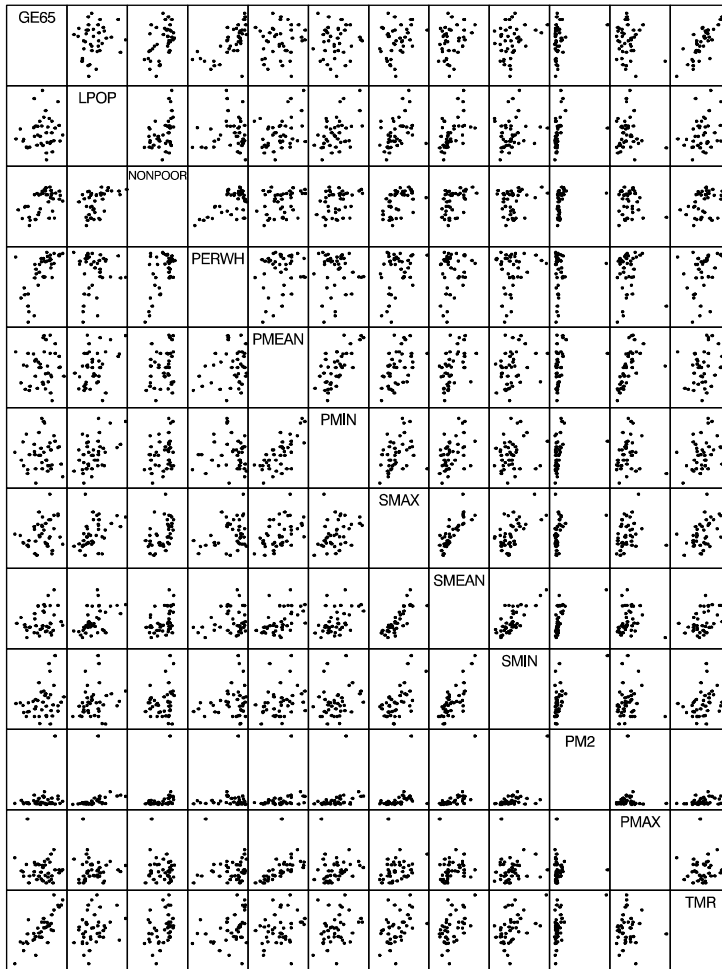 GE65
LPOP
NONPOOR
PERWH
PMEAN
PMIN
SMAX
SMEAN
SMIN
PM2
PMAX
TMR